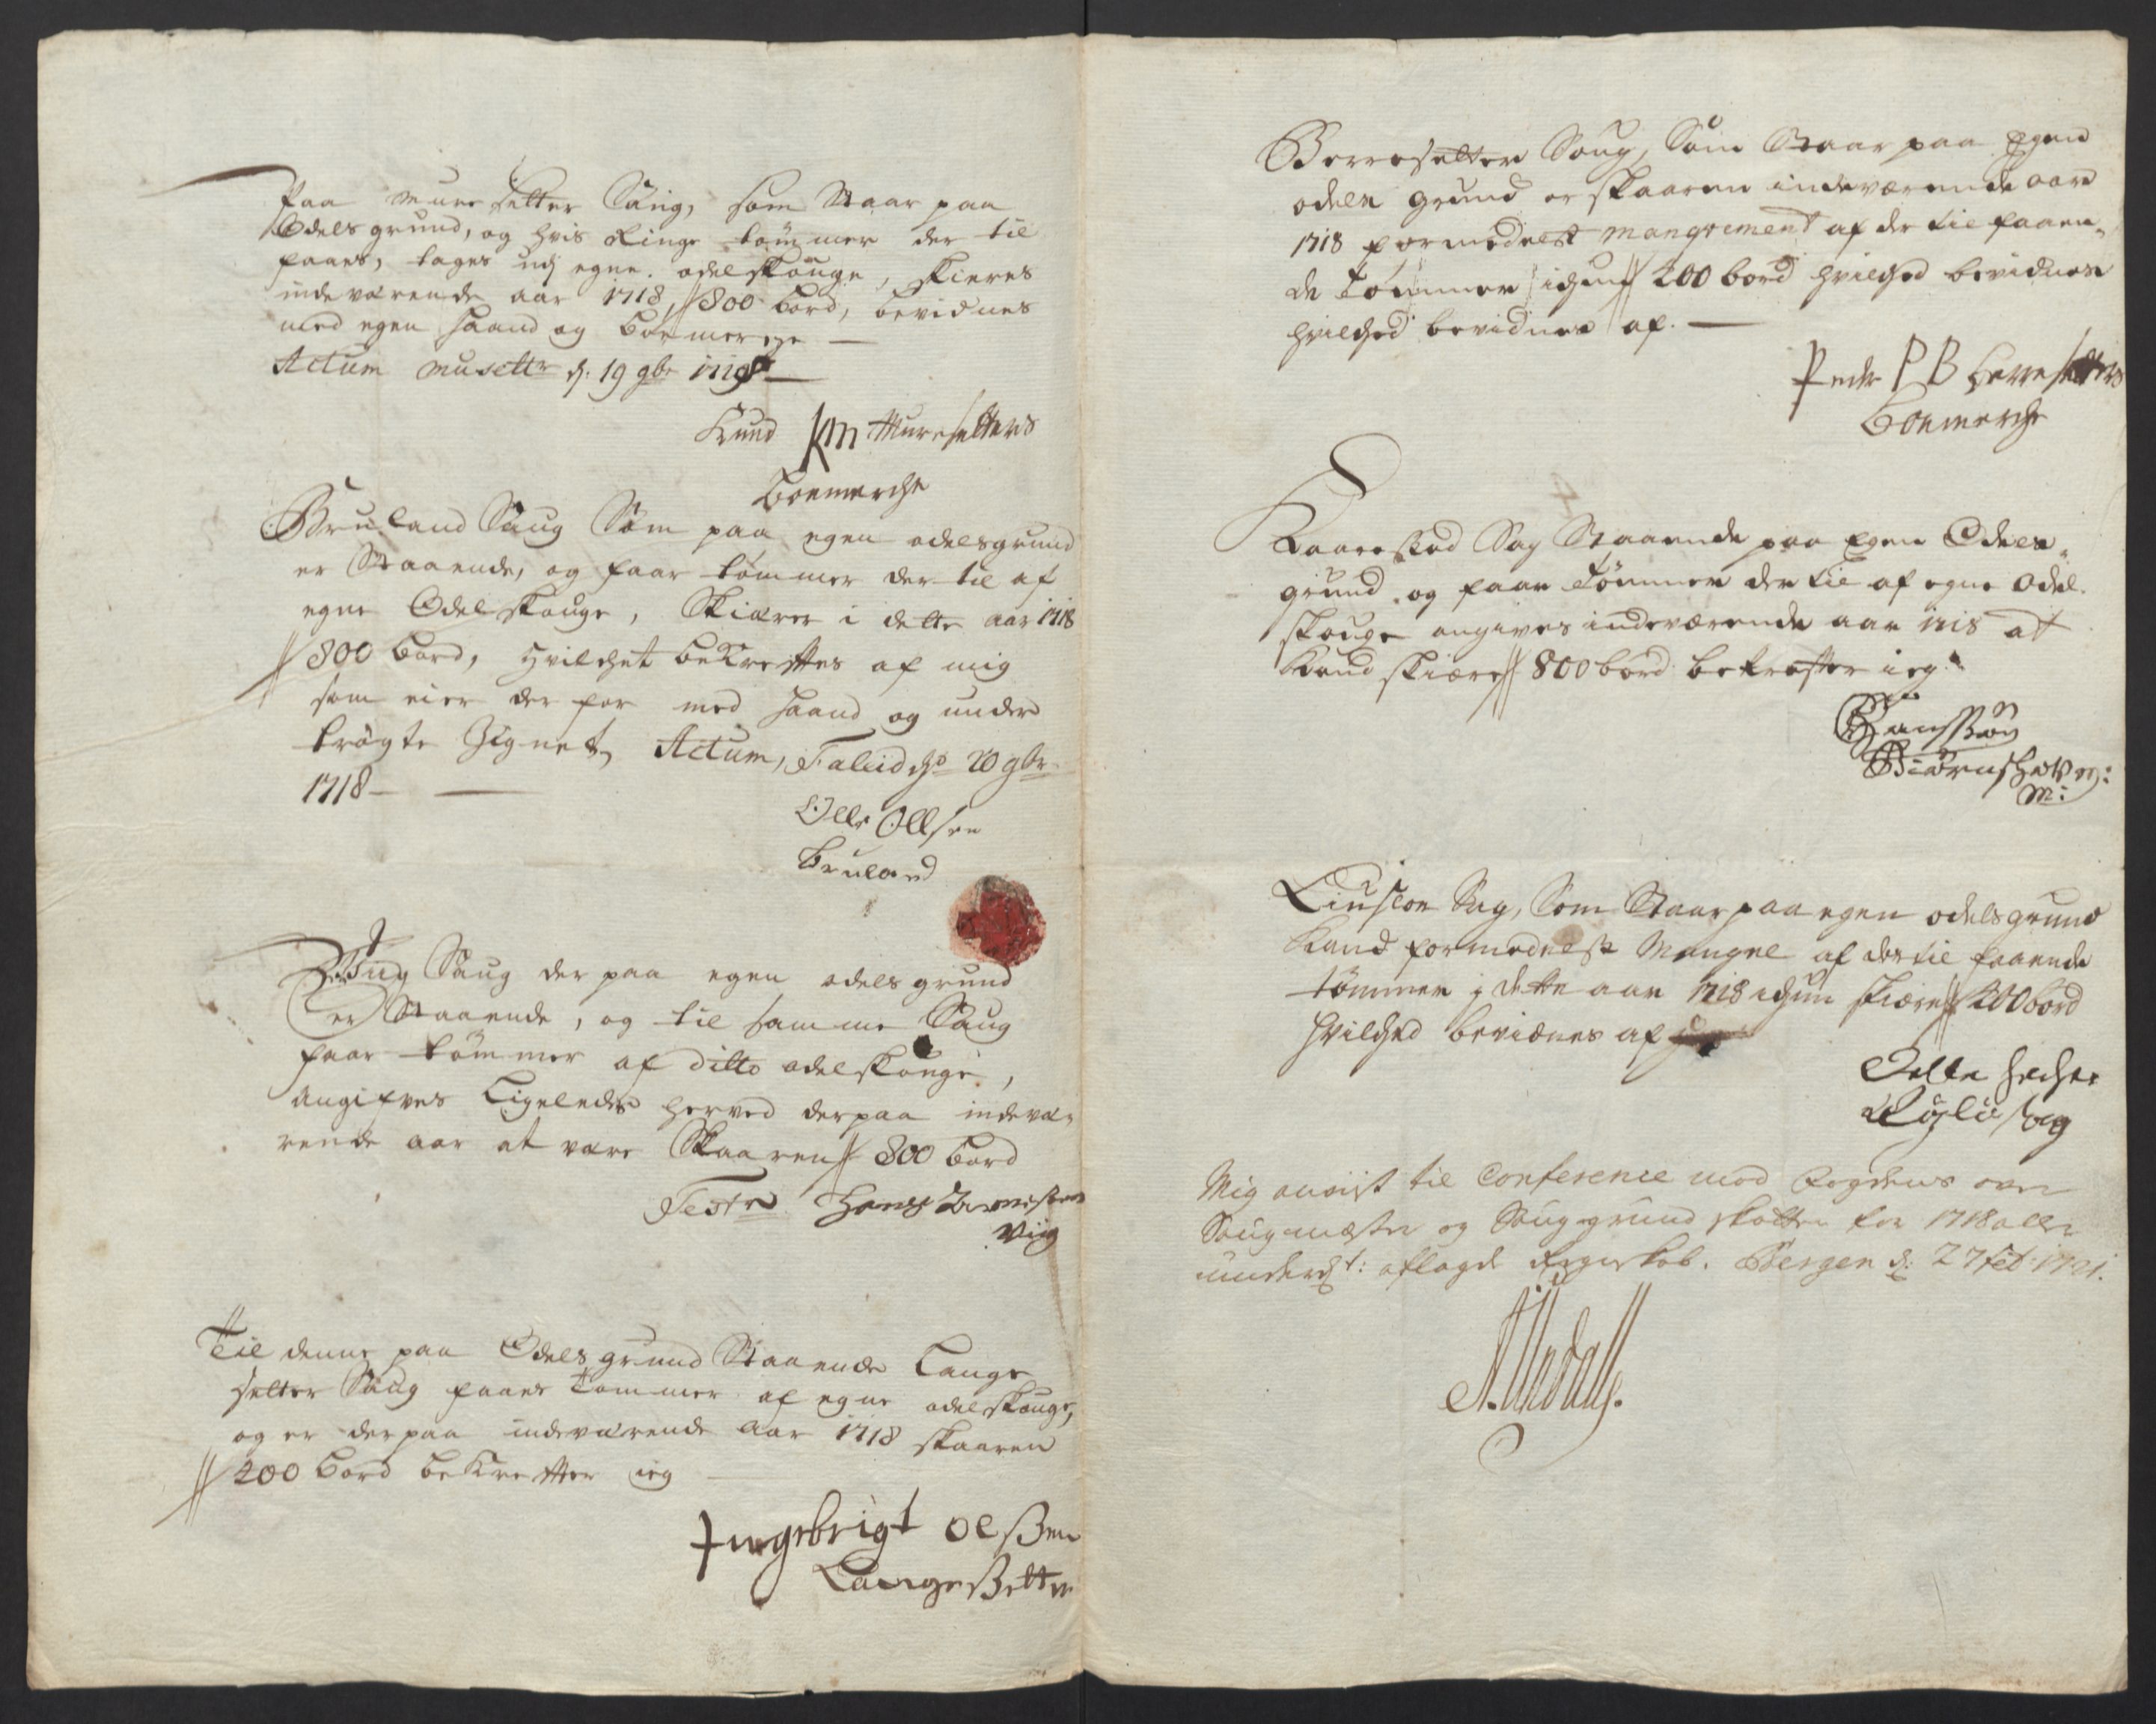 Paa Mure sætter Saug, som Staar paa
Odels grund, og hvis Ringe tømmer der til
faaes, tages udj egne odelskouge, skieres
indeværende aar 1718, 800 bord, bevidnes
med egen haand og boemerche
Actum Musettr d: 19 9br 1718
Knud KM Muresetters
boemerche
Bruland Saug Som paa egen odelsgrund
er Staaende, og faar tømmer der til af
egne Odelskouge, Skiærer i dette aar 1718
800 bord, hvilchet bekreftes af mig
som eier der for med haand og under
trögte Zignet, Actum, 20 9br
1718
Olle Ollsen
Bruland
Viig Saug der paa egen odels grund
er Staaende, og til samme Saug
faar tömmer af ditto odelskouge,
angifves Ligeledes herved derpaa indevæ-
rende aar at være Skaaren 800 bord
Hans
Viig
Til denne paa Odels grund Staaende Lange
setter Saug faaes Tommer af egne odelskouge,
og er derpaa indeværende aar 1718 skaaren
200 bord bekrefter ieg
Ingebrigt Olßen
Langeßetter
Saug, Som Staar paa Egen
odels grund er skaaren indeværende aar
1718 formedelst mangrement af der til faaen-
de Tömmer ichun 200 bord hvilched bevidnes
hvilched bevidnes af.
Peder PB
Boemerche
Sag Staaende paa Egen Odels-
grund og faar Tömmer der til af egne Odel
skouge angives indeværende aar 1718 at
Kand skiære 800 bord bekrefter ieg
Sag, Som Staar paa egen odels grund
Kand formedelst Mangel af der til faaende
tömmer i dette aar 1718 ichun skiære 200 bord
hvilched bevidnes af
Mig anvist til Conference med Fogdens over
Saugmestr og Saug grund skatten for 1718 aller
underd:t: aflagde Regnskab. Bergen d: 27 feb: 1721.